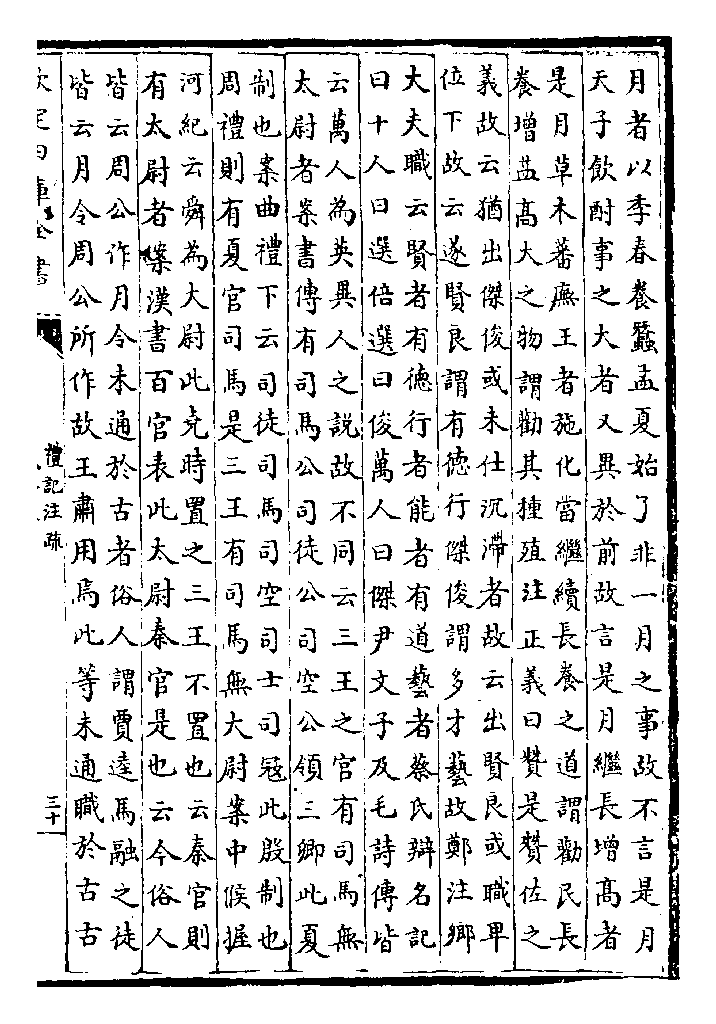 月者以季春養蠶孟夏始了非一月之事故不言是月
天子飲酎事之大者又異於前故言是月繼長增髙者
是月草木蕃廡王者施化當繼續長養之道謂勸民長
養增益髙大之物謂勸其種殖注正義曰贊是贊佐之
義故云猶出傑俊或未仕沉滯者故云出賢良或職卑
位下故云遂賢良謂有德行傑俊謂多才藝故鄭注鄉
大夫職云賢者有德行者能者有道藝者蔡氏辯名記
曰十人曰選倍選曰俊萬人曰傑尹文子及毛詩傳皆
云萬人為英異人之説故不同云三王之官有司馬無
太尉者案書傳有司馬公司徒公司空公領三卿此夏
制也案曲禮下云司徒司馬司空司士司冦此殷制也
周禮則有夏官司馬是三王有司馬無大尉案中候握
河紀云舜為大尉此堯時置之三王不置也云秦官則
有太尉者案漢書百官表此太尉秦官是也云今俗人
皆云周公作月令未通於古者俗人謂賈逵馬融之徒
皆云月令周公所作故王肅用焉此等未通職於古古
欽定四庫全書
禮記注疏
三十